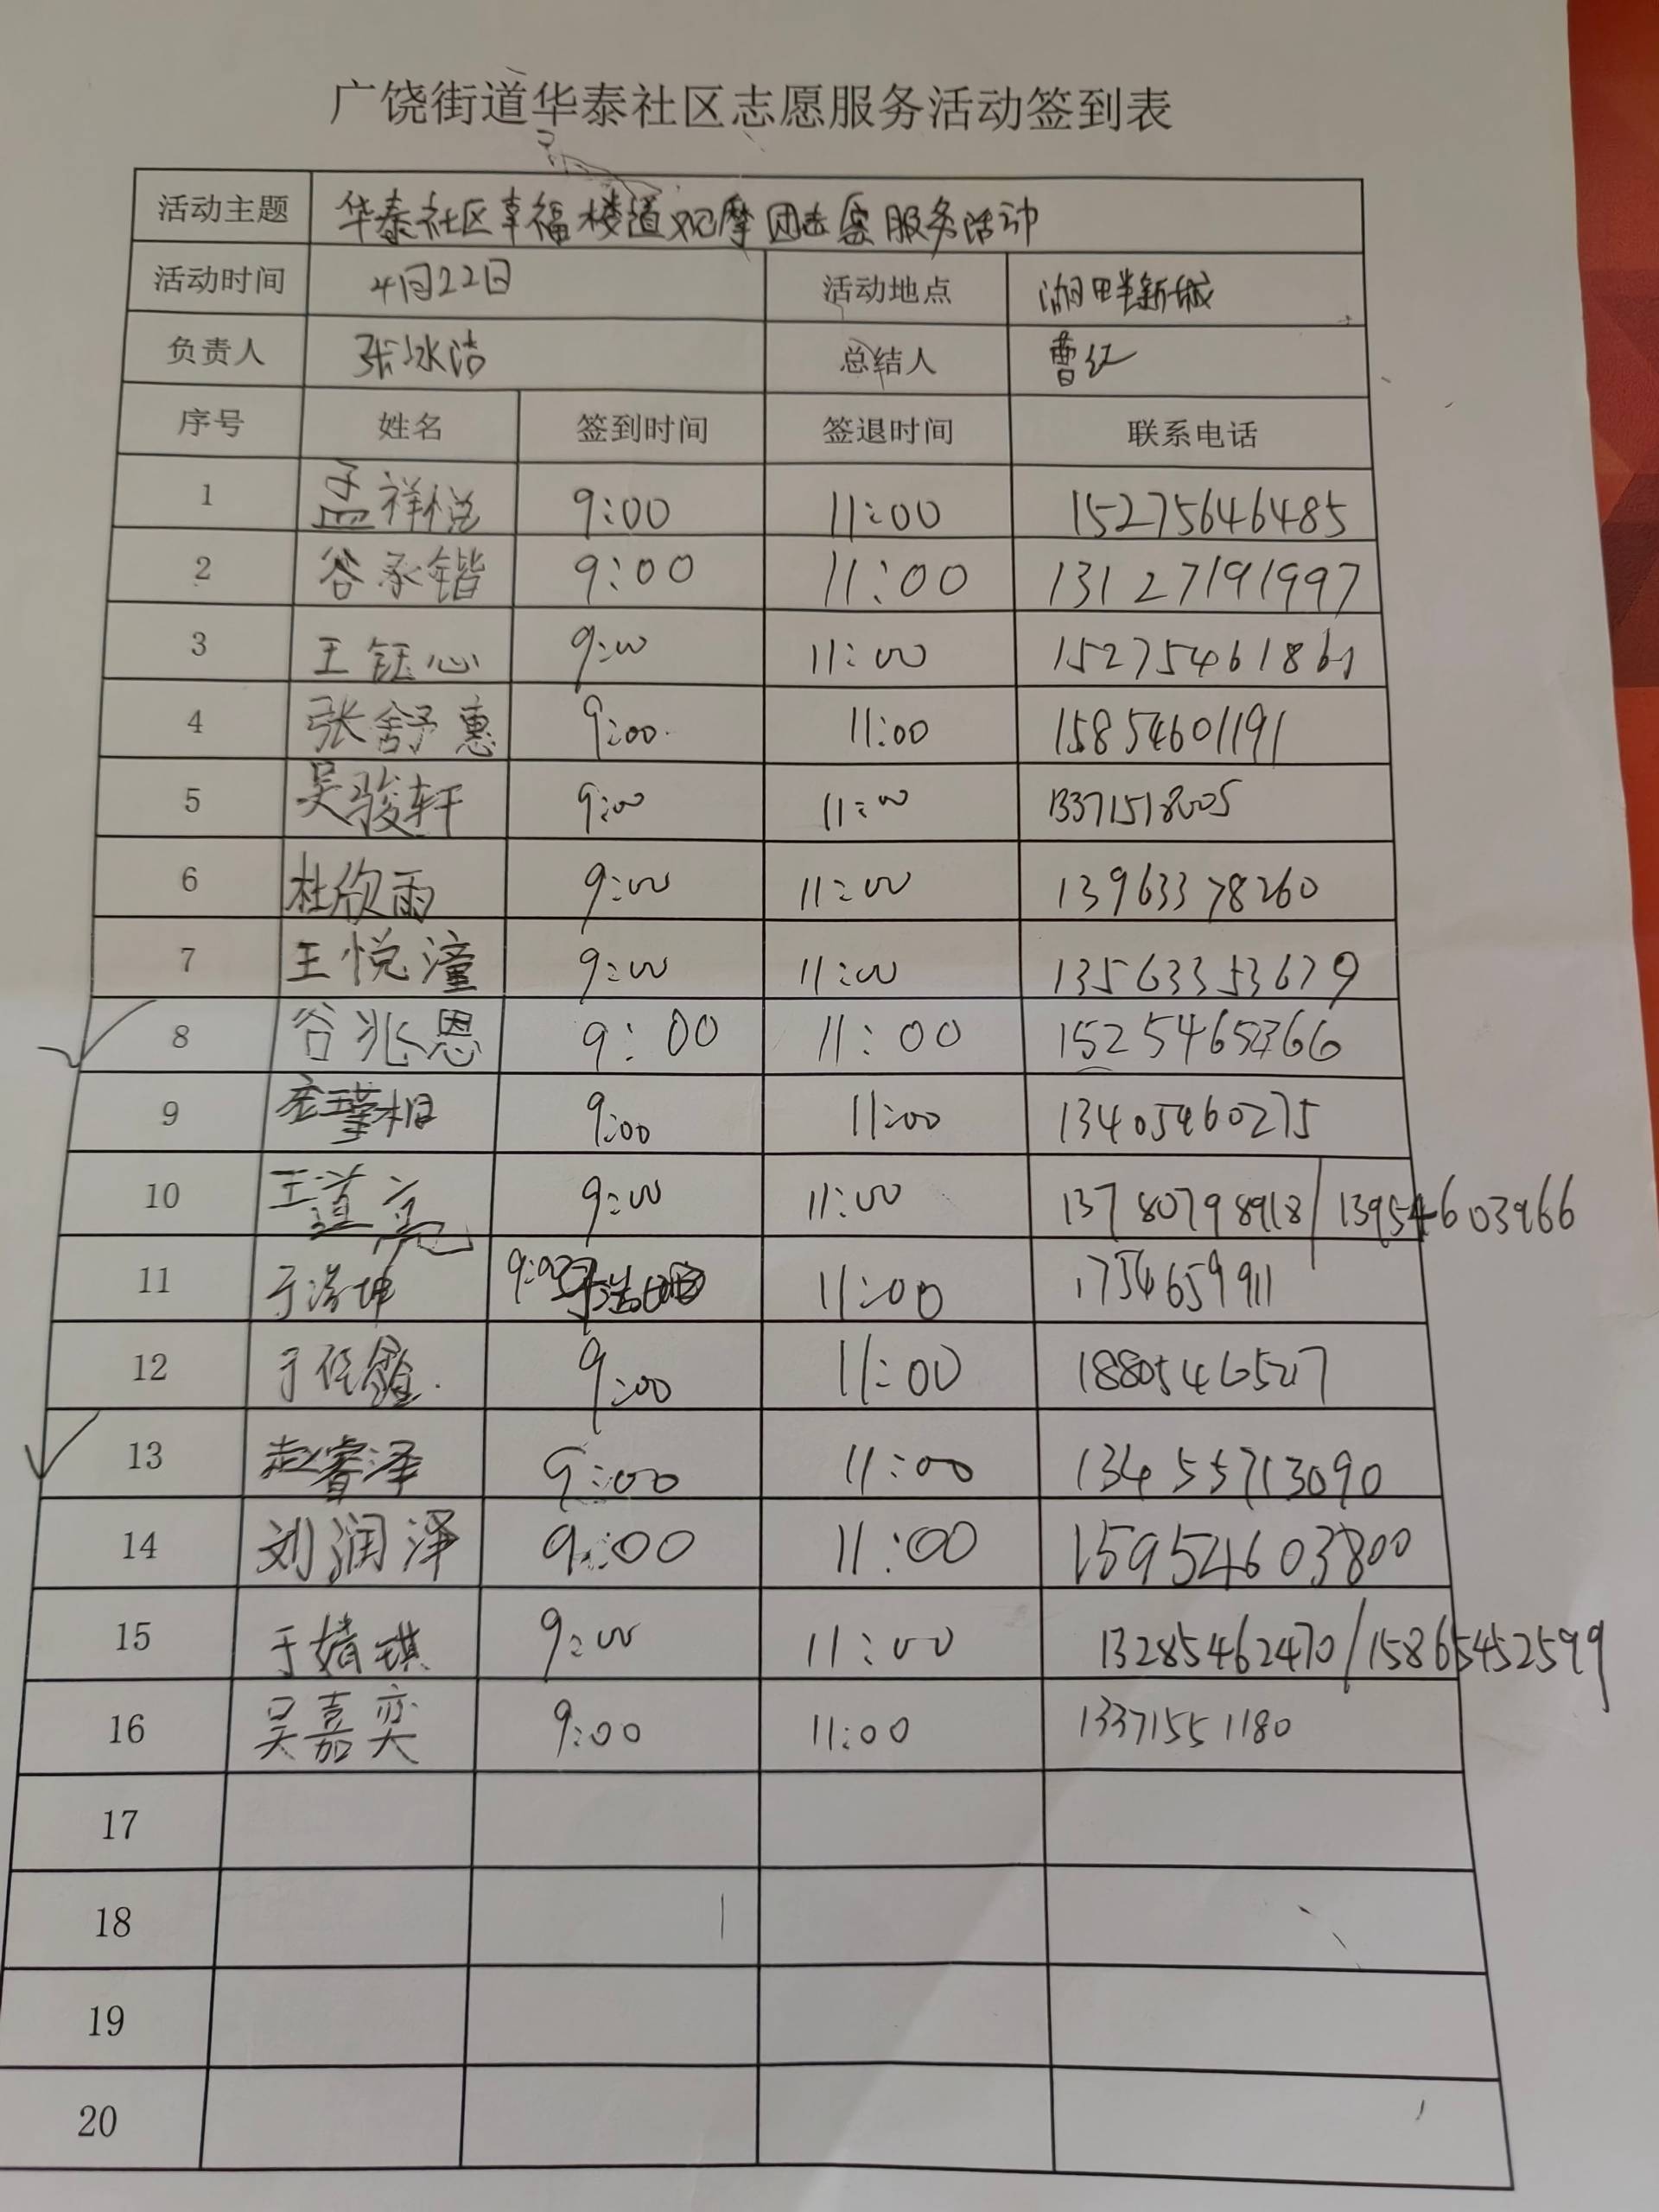 广饶街道华泰社区志愿服务活动签到表
活动主题 华泰社区幸福楼道观摩团志愿服务活动
活动时间 4月22日 活动地点 湖畔新城
负责人 张冰洁 总结人 曹红
序号 姓名 签到时间 签退时间 联系电话
1 孟祥悦 9:00 11:00 15275646485
2 谷承锴 9:00 11:00 13127191997
3 王钰心 9:00 11:00 15275461861
4 张舒惠 9:00 11:00 15854601191
5 吴骏轩 9:00 11:00 13371518005
6 杜欣雨 9:00 11:00 13963378260
7 王悦潼 9:00 11:00 13563353679
8 谷兆恩 9:00 11:00
9 9:00 11:00 13405460275
10 王道亮 9:00 11:00 13780798918/13954603966
11 于浩坤 9:00 11:00 1754659911
12 于任 9:00 11:00 18805460527
13 赵睿泽 9:00 11:00 13455713090
14 刘润泽 9:00 11:00 15954603800
15 于婧琪 9:00 11:00 13285462470/15865452599
16 吴嘉奕 9:00 11:00 13371551180
17
18
19
20